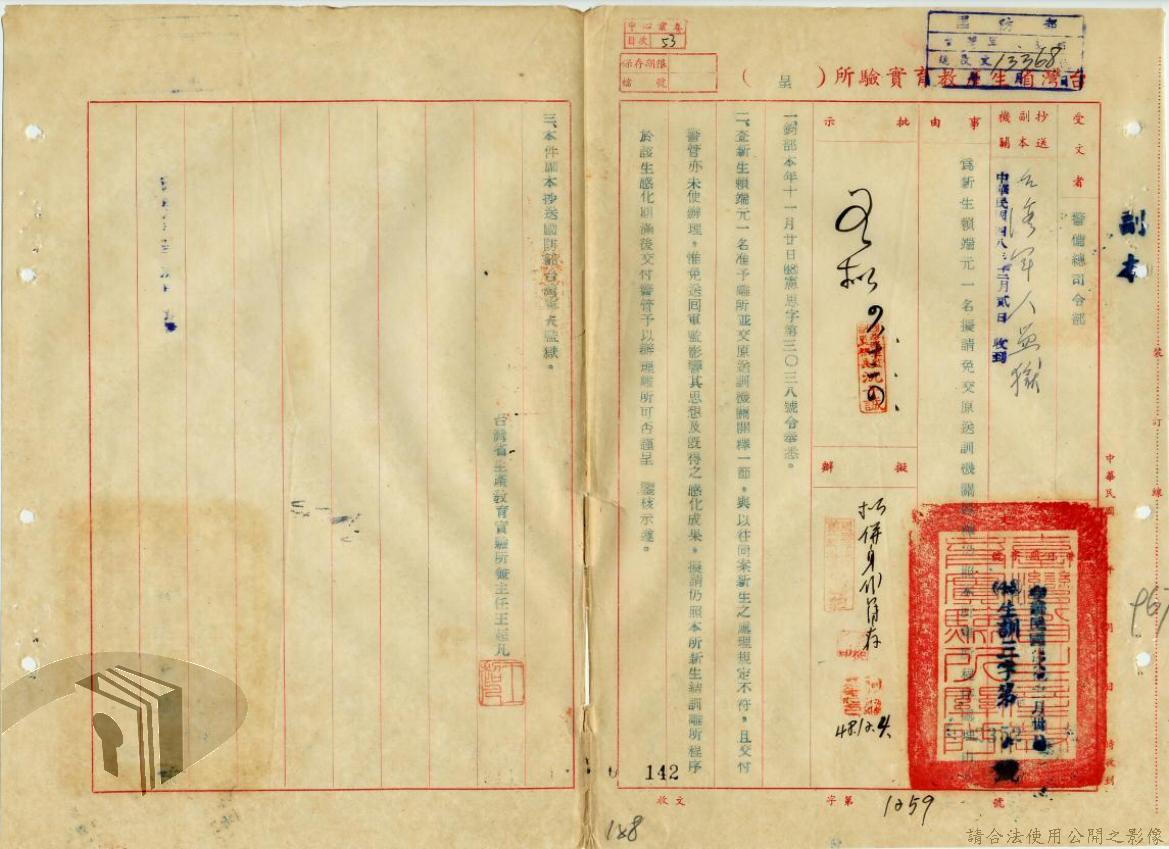 中心業務
目次 53
保存期限
檔號
國防部
收文 13368
台灣省生產教育實驗所（呈）
副本
受文者
警備總司令部
抄送副本機關
台灣軍人監獄
中華民國四八年十二月貳日收到
事由
為新生賴端元一名擬請免交原送訓機關
批示
擬辦
存
48.12.4.
一、鈞部本年十一月廿日 憲思字第三〇三八號令奉悉。
二、查新生賴端元一名准予離所並交原送訓機關開釋一節，與以往同案新生之處理規定不符，且交付
警管亦未便辦理，惟免送回軍監影響其思想及既得之感化成果，擬請仍照本所新生結訓離所程序
於該生感化期滿後交付警管予以辦理離所可否謹呈 鑒核示遵。
三、本件副本抄送國防部台灣軍人監獄。
台灣省生產教育實驗所兼主任王超凡
生訓三字第
中華民國 年 月 日 時收到
裝訂線
142
收文 字第 1259 號
188
請合法使用公開之影像